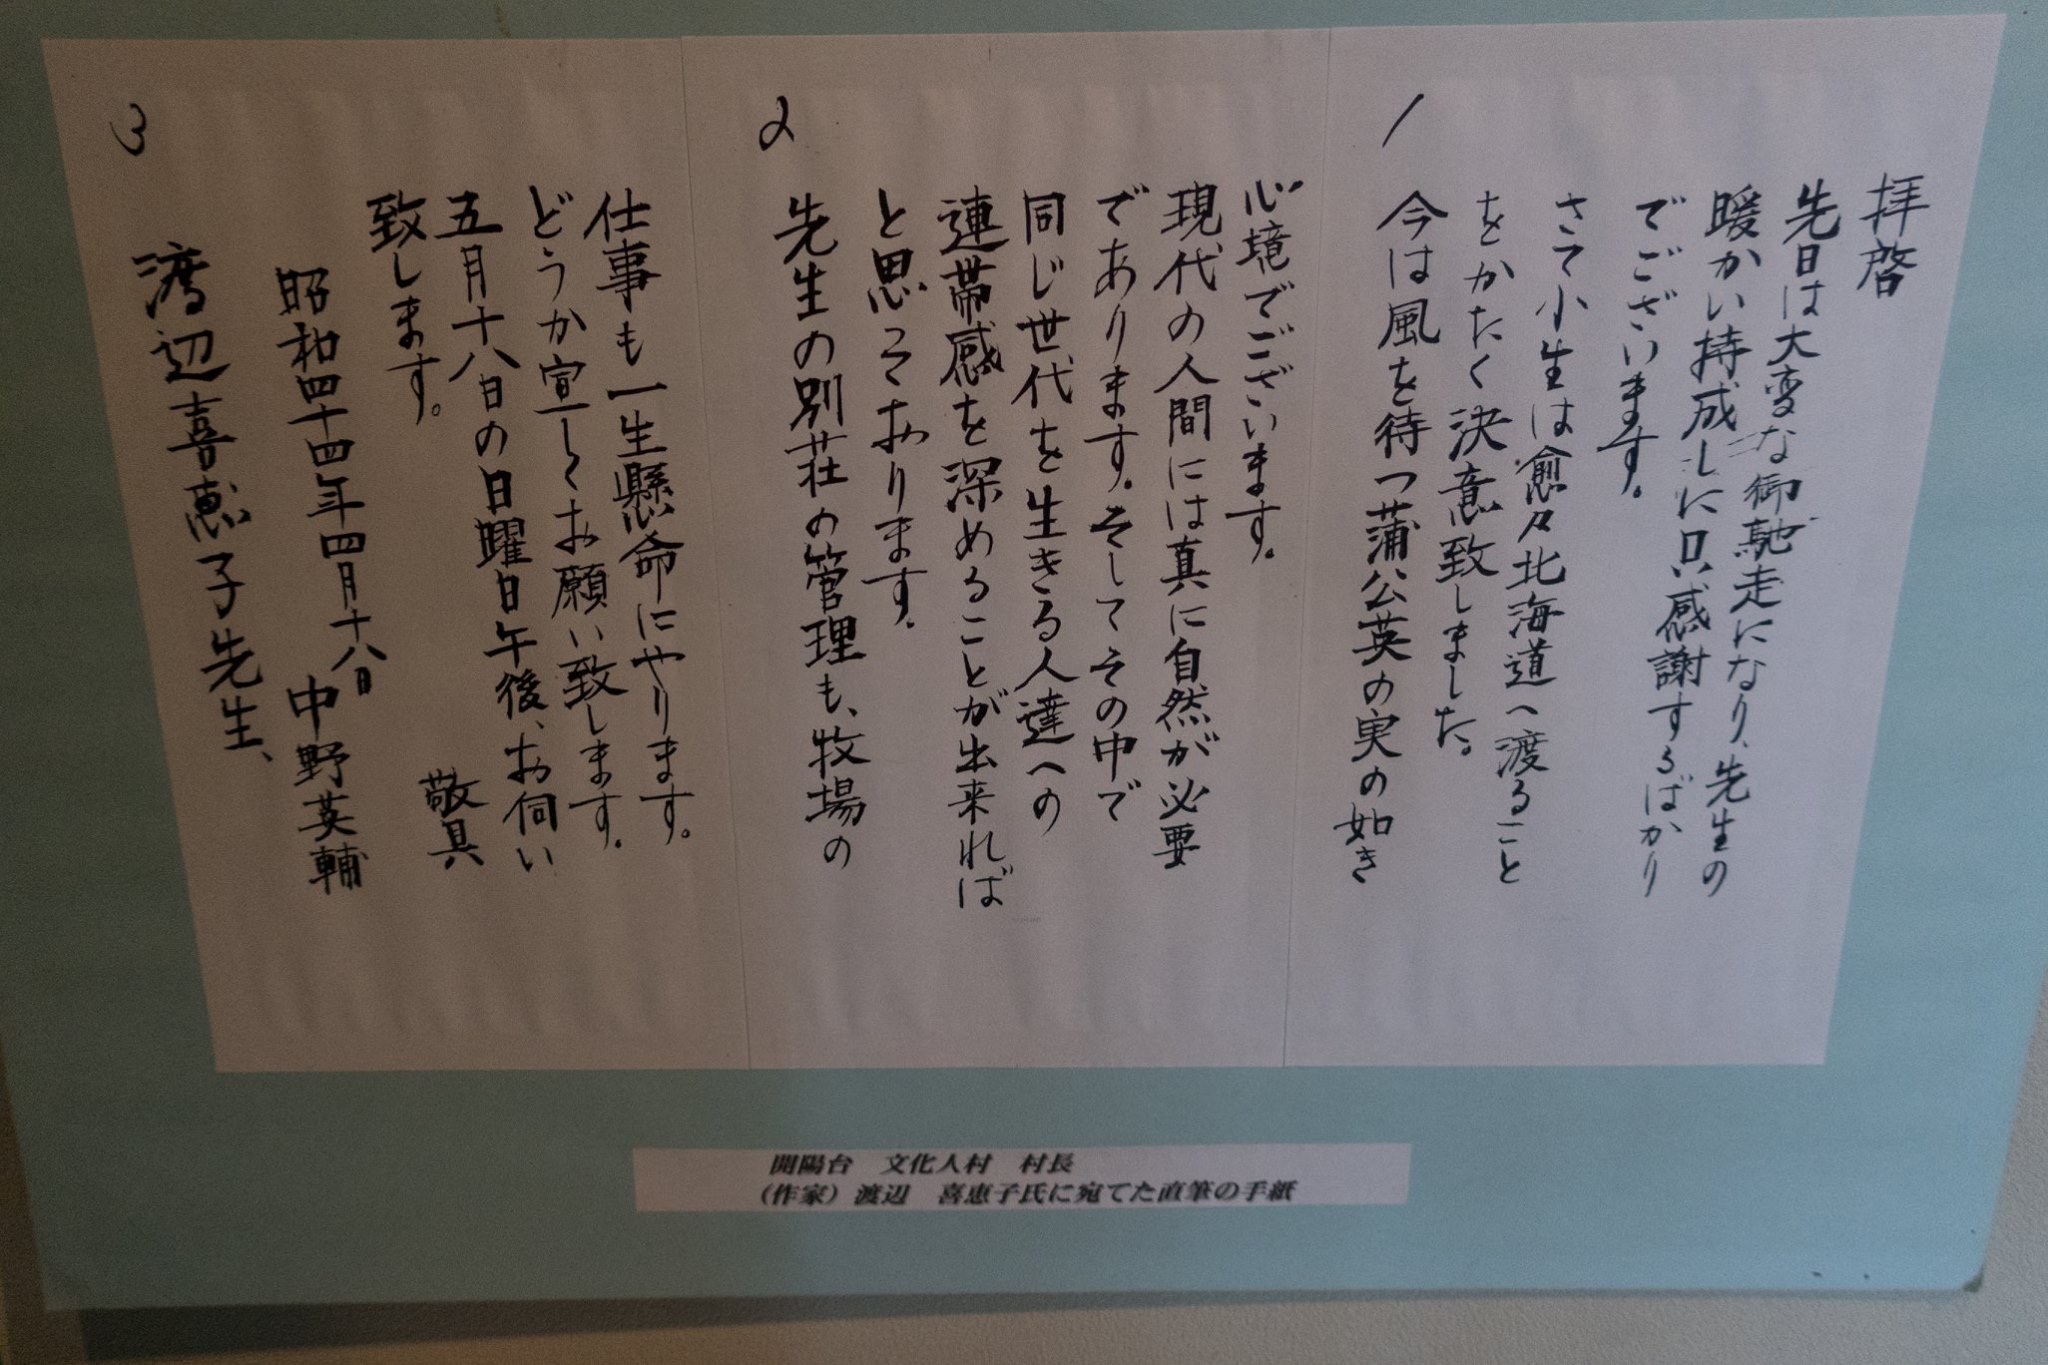 1
拝啓
先日は大変な御馳走になり、先生の
暖かい持成しに只感謝するばかり
でございます。
さて小生は愈々北海道へ渡ること
をかたく決意致しました。
今は風を待つ蒲公英の実の如き
2
心境でございます。
現代の人間には真に自然が必要
であります。そしてその中で
同じ世代を生きる人達への
連帯感を深めることが出来れば
と思っております。
先生の別荘の管理も、牧場の
3
仕事も一生懸命にやります。
どうか宣しくお願い致します。
五月十八日の日曜日午後、お伺い
致します。
敬具
昭和四十四年四月十八日
中野英輔
渡辺喜恵子先生、
開陽台 文化人村 村長
(作家) 渡辺 喜恵子氏に宛てた直筆の手紙